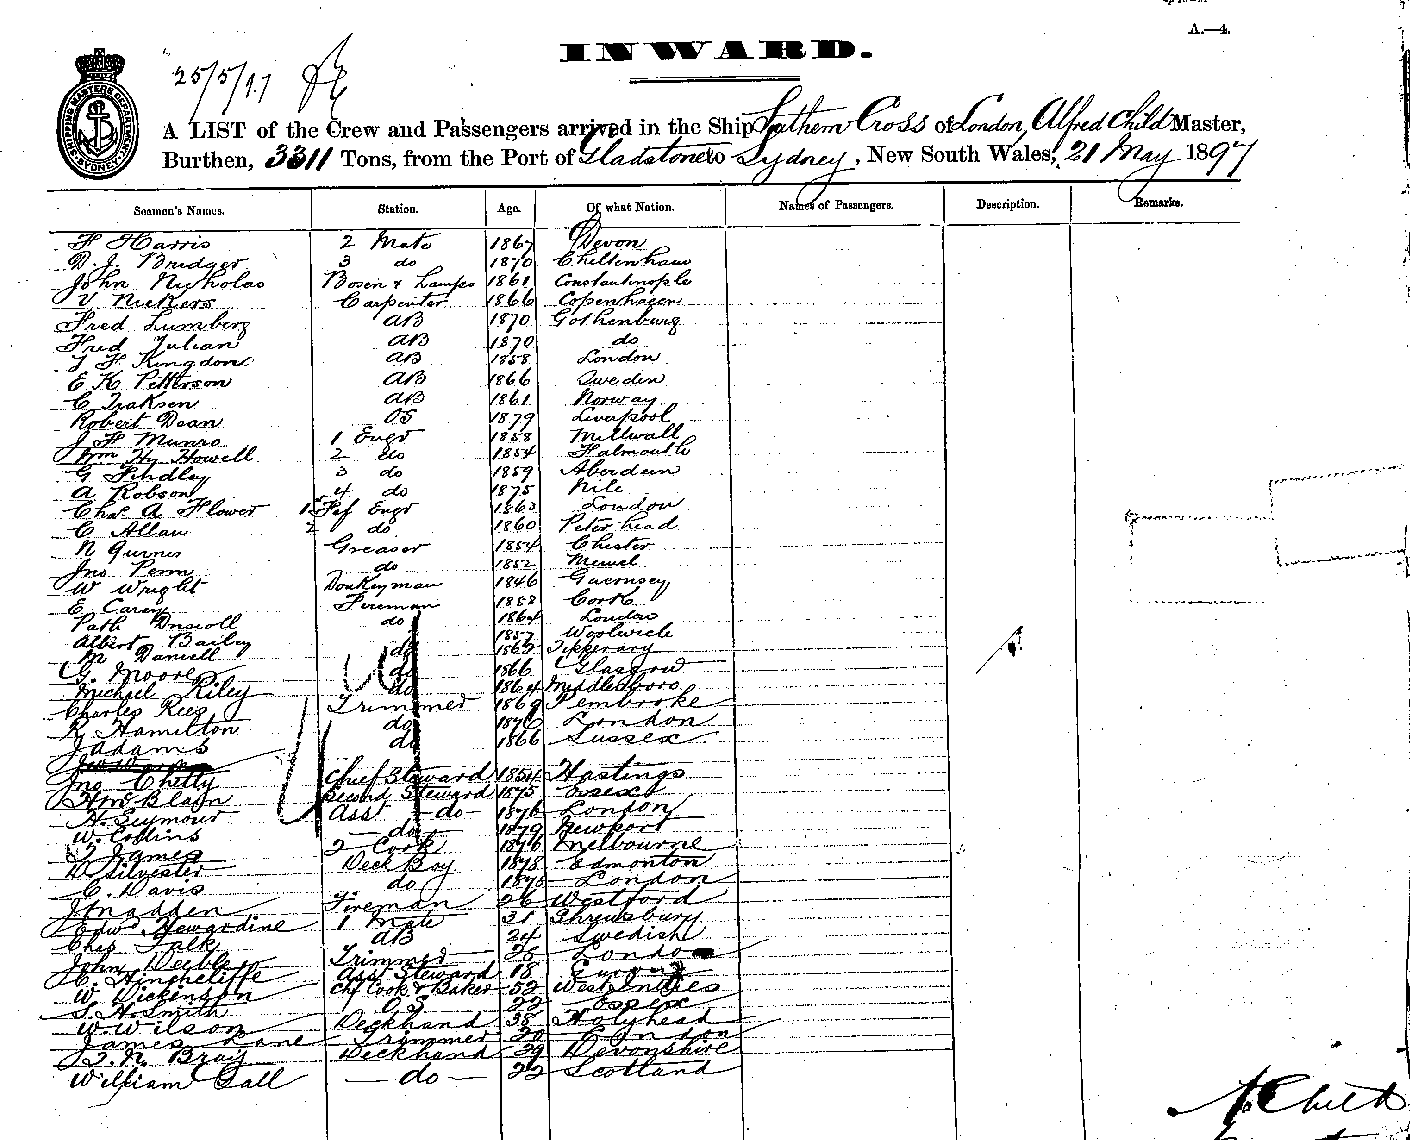 A.—4.
INWARD.
25/5/97
A LIST of the Crew and Passengers arrived in the Ship Southern Cross of London, Alfred Child Master,
Burthen, 3311 Tons, from the Port of Gladstone to Sydney, New South Wales, 21 May 1897
Seamen's Names. Station. Age. Of what Nation. Names of Passengers. Description. Remarks.
F Harris 2 Mate 1867 Devon
D. J. Bridger 3 do 1870 Cheltenham
John Nicholas Bosen & Lamps 1861 Constantinople
V Nickers Carpenter 1866 Copenhagen
Fred Lumberg AB 1870 Gothenburg
Fred Julian AB 1870 do
J F Kingdon AB 1858 London
E K Petterson AB 1866 Sweden
C Isaksen AB 1861 Norway
Robert Dean OS 1879 Liverpool
J F Munro 1 Engr 1858 Millwall
Wm Hy Howell 2 do 1854 Falmouth
G Findlay 3 do 1859 Aberdeen
A Robson 4 do 1875 Nile
Chas A Flower 1 Ref Engr 1863 London
C Allan 2 do 1860 Peterhead
N Greaser 1854 Chester
Jno Penn do 1852
W Wright Donkeyman 1846 Guernsey
E Carey Fireman 1858 Cork
Path Driscoll do 1864 London
Albert Bailey 1857 Woolwich
M Daniell do 1863 Tipperary
G. Moore do 1866 Glasgow
Michael Riley do 1864 Middlesboro
Charles Rees Trimmer 1869 Pembroke
R Hamilton do 1876 London
J Adams do 1866 Sussex
Jno Chetty Chief Steward 1854 Hastings
Second Steward 1875 Essex
H. Seymour Asst do 1876 London
W. Collins do 1879 Newport
J James 2 Cook 1876 Melbourne
D Silvester Deck Boy 1878 Edmonton
C. Davis do 1878 London
J Madden Fireman 26 Westford
Edwd Hewardine 1 Mate 31 Shrewsbury
Chas Falk AB 24 Swedish
John Trimmer 28 London
C. Hinchcliffe Asst Steward 18
W. Dickenson Chf Cook & Baker 52 West Indies
S. H. Smith O S 22 Essex
W. Wilson Deckhand 38 Holyhead
James Lane Trimmer 20 London
J. N. Bray Deckhand 29 Devonshire
William Gall do 22 Scotland
A. Child